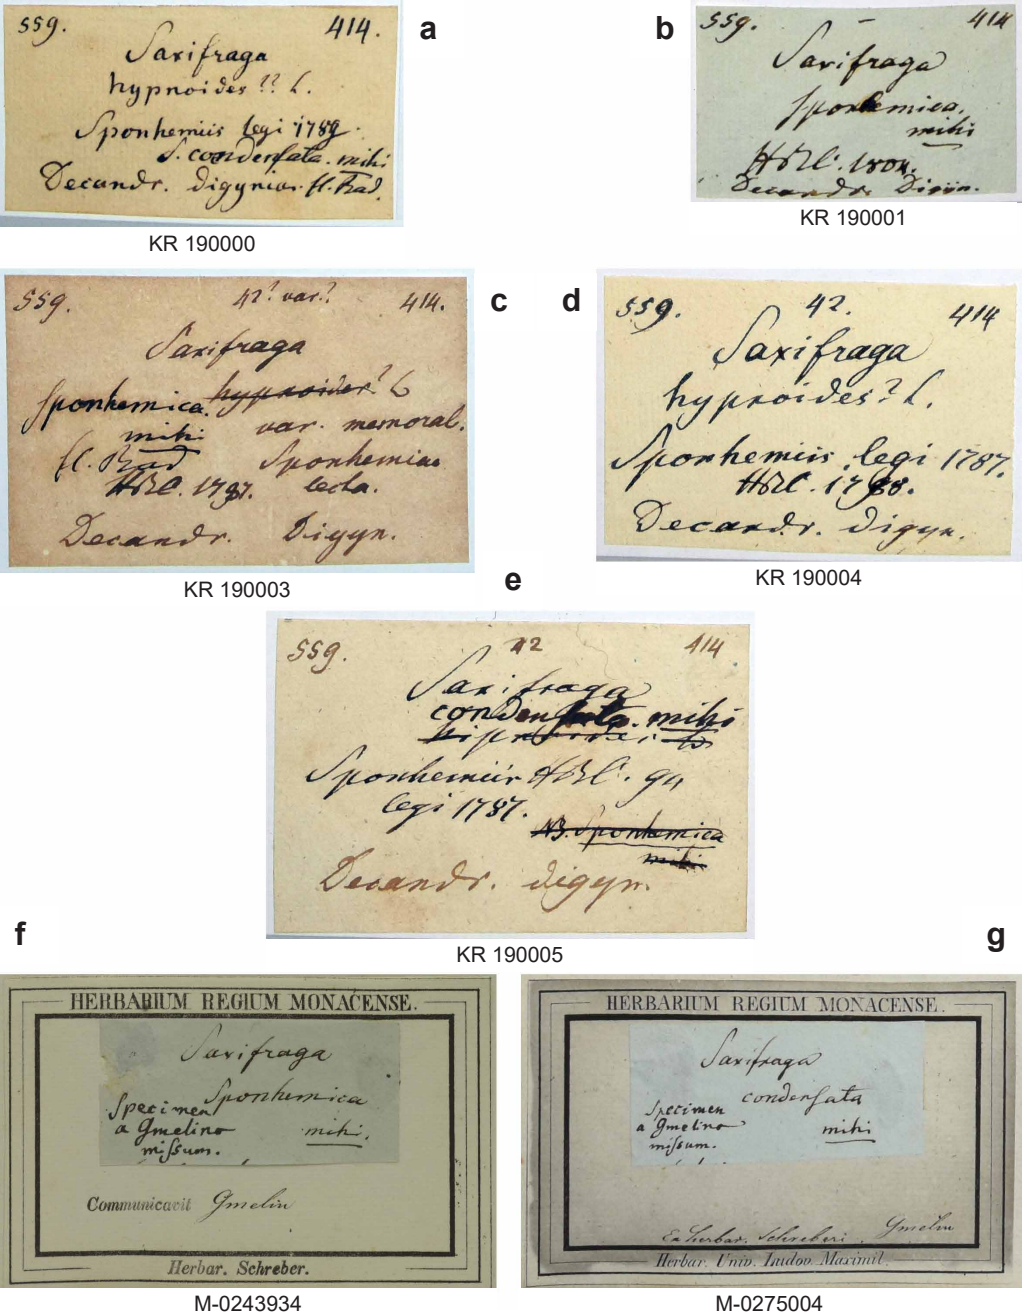 559. 414.
Saxifraga
hypnoides ?? L.
Sponhemiis legi 1789.
S. condensata. mihi
Decandr. digynia. fl. Bad.
a
KR 190000
559. 414
Saxifraga
sponhemica.
mihi
HBC. 1804.
Decandr. Digyn.
b
KR 190001
559. 42? var.? 414.
Saxifraga
sponhemica. hypnoides? L
mihi var. memoral.
fl. Bad Sponhemiae
HBC. 1797. lecta.
Decandr. Digyn.
c
KR 190003
d
559. 42. 414
Saxifraga
hypnoides? L.
Sponhemiis legi 1787.
HBC. 1788.
Decandr. digyn.
KR 190004
e
559. 42 414
Saxifraga
condensata. mihi
Sponhemiis HBC.
legi 1787.
NB. Sponhemica
mihi
Decandr. digyn.
KR 190005
f
HERBARIUM REGIUM MONACENSE.
Saxifraga
Sponhemica
Specimen
a Gmelino mihi.
missum.
Communicavit Gmelin
Herbar. Schreber.
M-0243934
g
HERBARIUM REGIUM MONACENSE.
Saxifraga
condensata
Specimen
a Gmelino mihi
missum.
Ex herbar. Schreberi. Gmelin
Herbar. Univ. Ludov. Maximil.
M-0275004